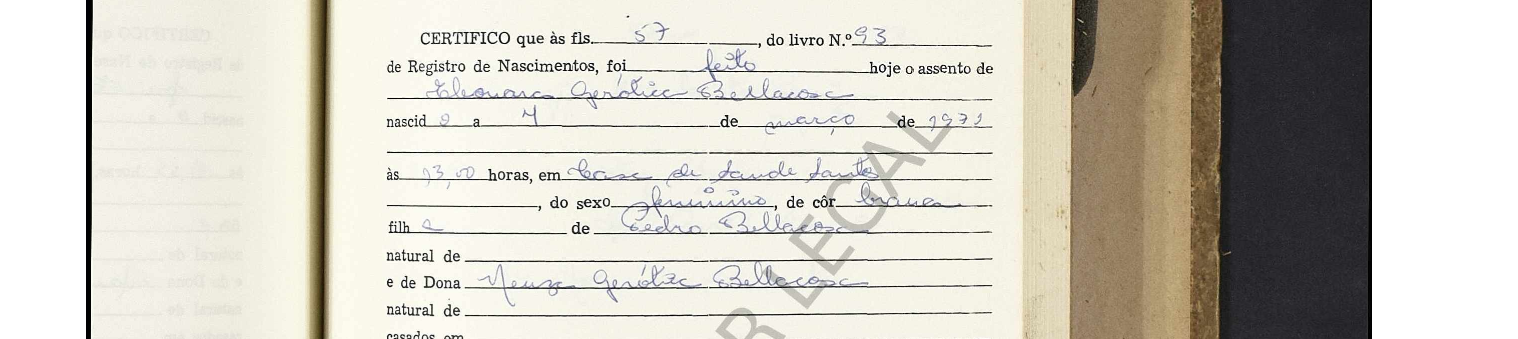 CERTIFICO que às fls. 57, do livro N.º 93
de Registro de Nascimentos, foi feito hoje o assento de
Gerótica Bellacosa
nascid a a 4 de março de 1971
às 13,00 horas, em Casa de Saude Santo
, do sexo feminino, de côr branca
filh a de Pedro Bellacosa
natural de
e de Dona Neuza Gerótica Bellacosa
natural de
casados em
R LEGAL